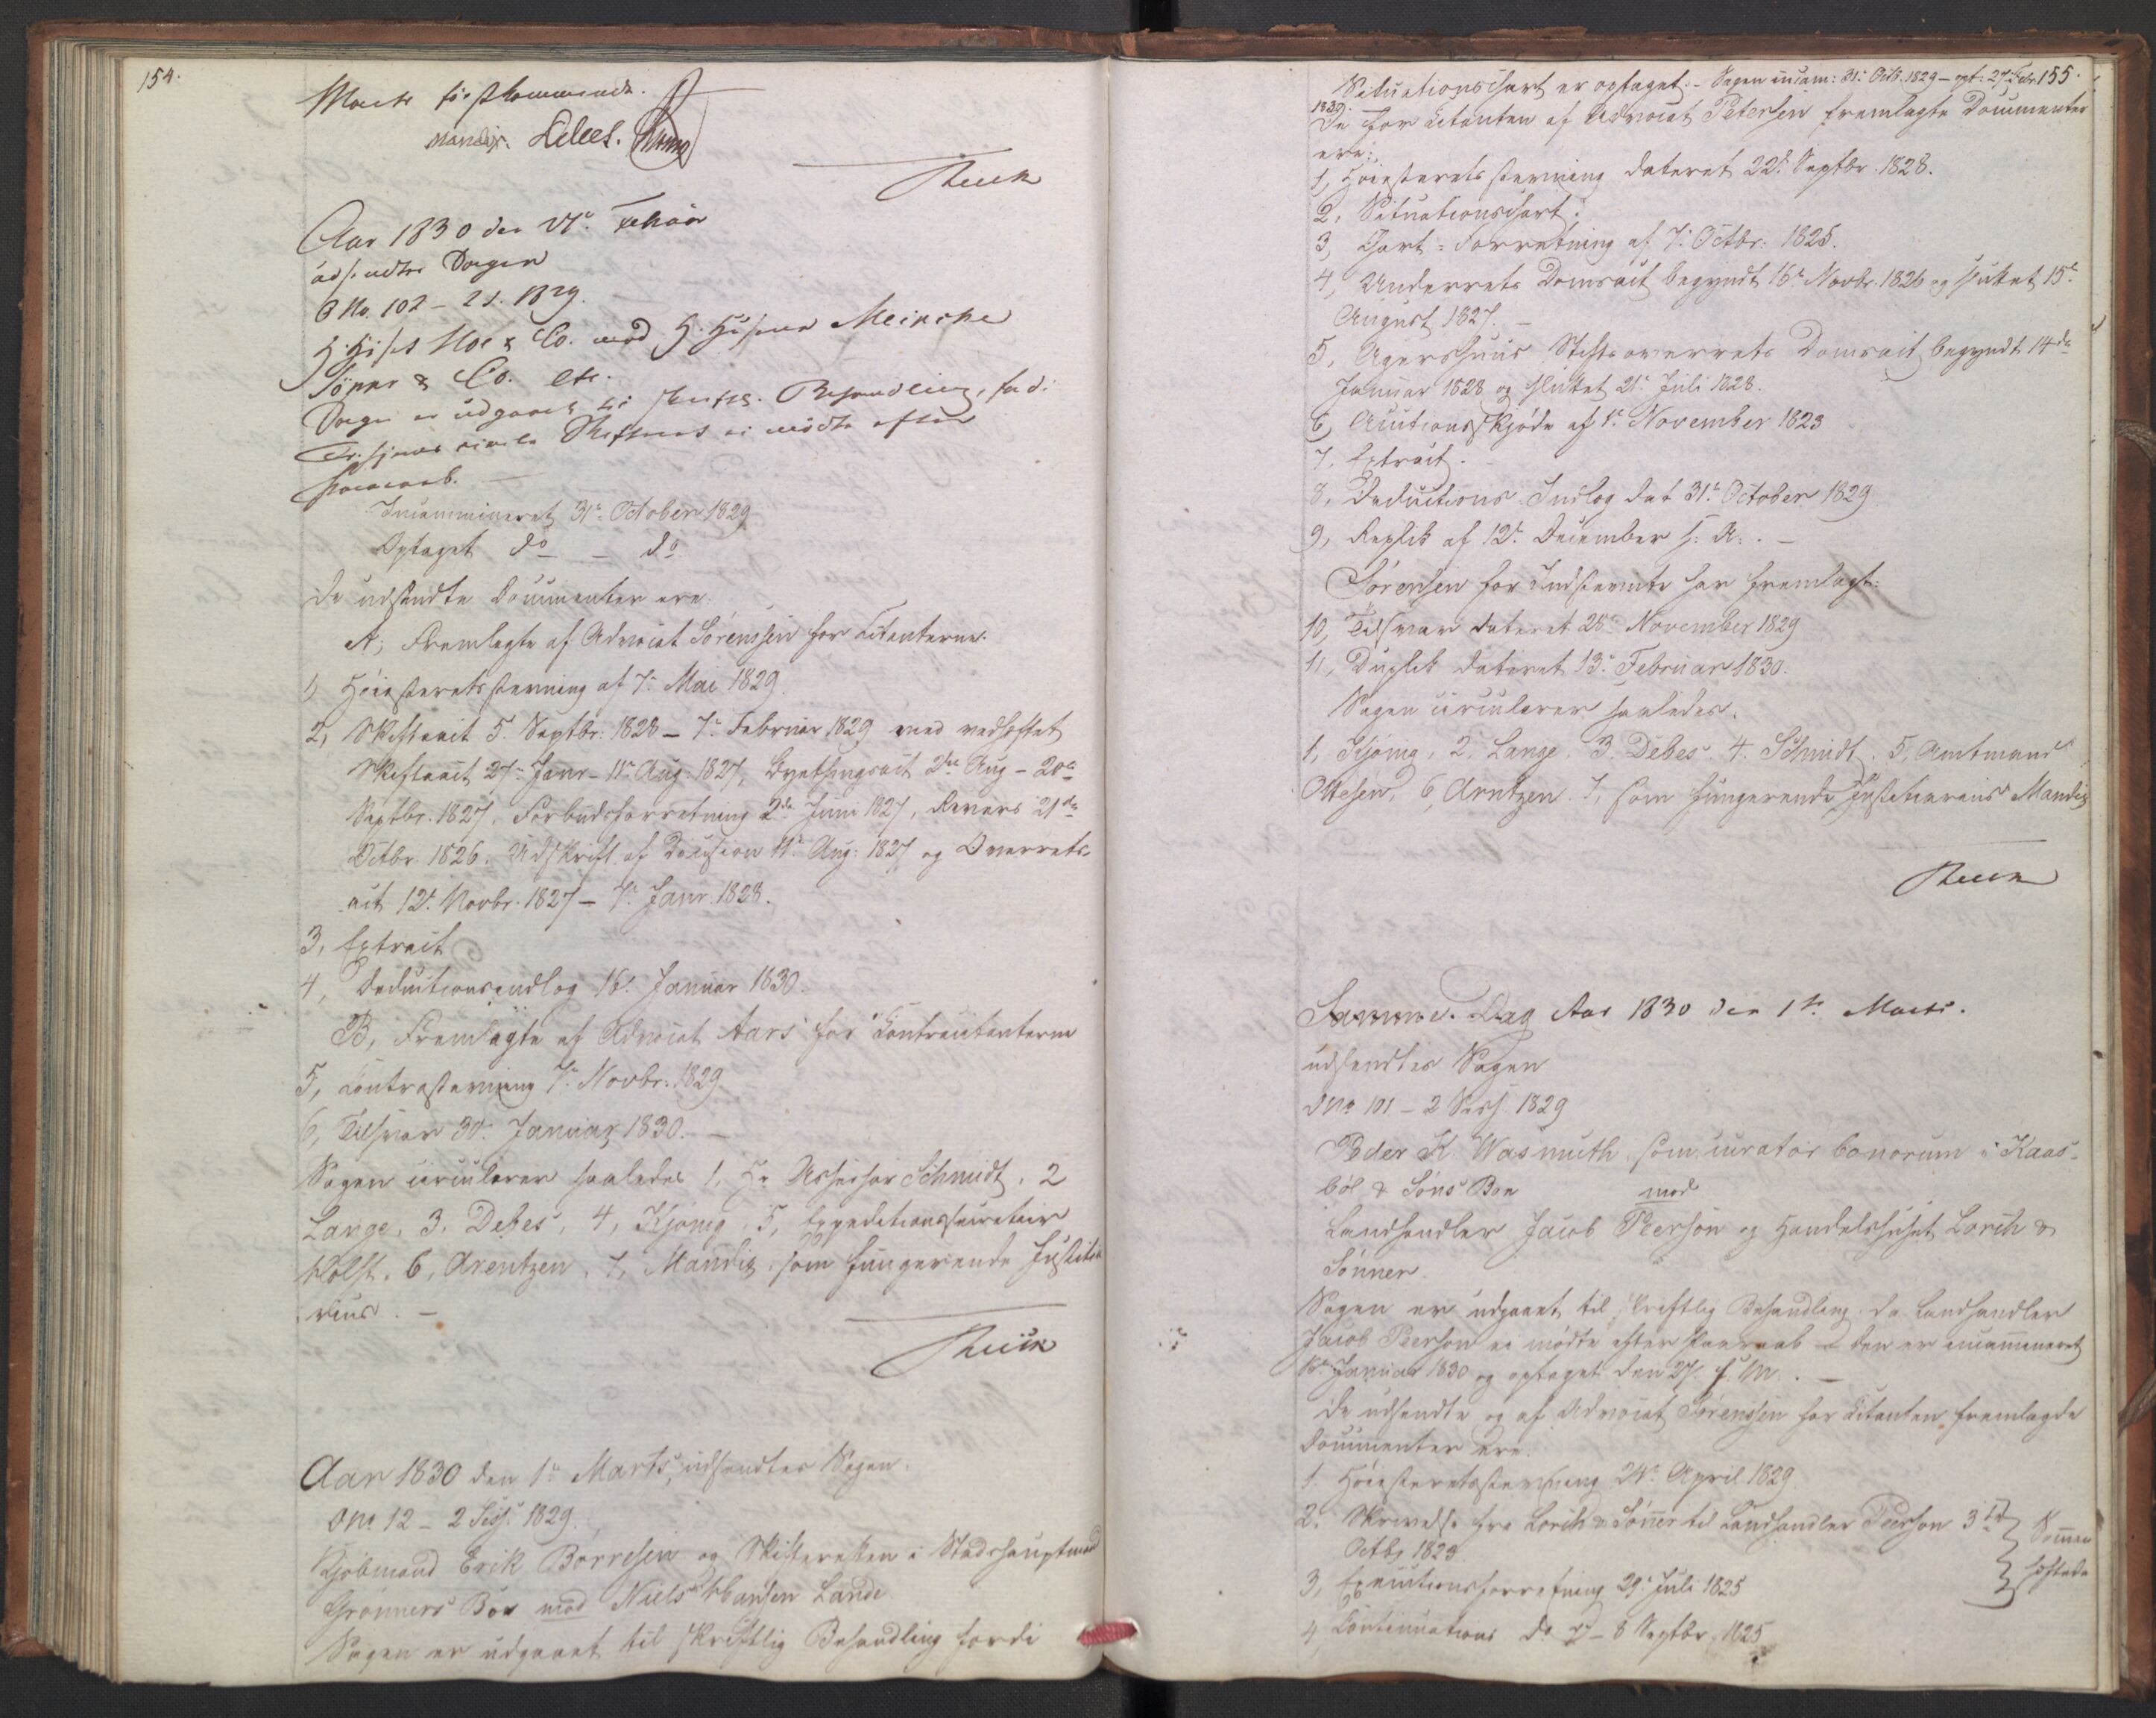 154.
Marts førstkommende.
Mandix. Debes.
Aar 1830 den Februar
udsendtes Sagen
O No. 102 - 2 S. 1829.
H. Huset Moe & Co. mod H. Husene Meincke
Sønner & Co. etc.
Sagen er udgaaet til skriftl. Behandling, fordi
ei mødte efter
Paaraab.
Incammineret 31te October 1829
Optaget do - do
De udsendte Documenter ere:
A, Fremlagte af Advocat Sørenssen for Citanterne.
1, Høiesteretsstevning af 7de Mai 1829.
2, Skifteact 5. Septbr. 1828 - 7de Februar 1829 med vedheftet
Skifteact 27de Janr - 11te Aug. 1827, Gjethingsact 2den Aug - 20de
Septbr. 1827, Forbudsforretning 2de Juni 1827, Revers 21de
Octbr. 1826. Udskrift af Decision 11te Aug. 1827 og Overrets-
act 12te Novbr. 1827 - 7de Janr. 1828.
3, Extract
4, Deductionsindlæg 16. Januar 1830.
B, Fremlagte af Advocat Aars for Contracitanterne
5, Contrastevning 7de Novbr. 1829
6, Tilsvar 30. Januar 1830. -
Sagen circulerer saaledes 1, Hr Assessor Schmidt, 2
Lange, 3. Debes, 4, Kjønig, 5, Expeditionssecretair
Holst, 6, Arentzen, 7, Mandix, som fungerende Justitia
rius. -
Aar 1830 den 1te Marts, udsendtes Sagen.
O No 12 - 2 Sess. 1829.
Kjøbmand Erik Børresen og Skifteretten i Stadshauptmand
Grønners Boe mod Niels Hansen Lande
Sagen er udgaaet til skriftlig Behandling fordi
155.
Situationschart er optaget. - Sagen incam: 31. Octb. 1829 - opt: 27. Febr.
1830.
De for Citanten af Advocat Petersen fremlagte Documenter
ere:
1, Høiesteretsstevning dateret 22de Septbr. 1828.
2, Situationschart.
3, Chart-Forretning af 7. Octbr. 1825.
4, Underrets Domsact begyndt 16de Novbr. 1826 og sluttet 15de
August 1827. -
5, Agershuus Stiftsoverrets Domsact begyndt 14de
Januar 1828 og sluttet 21de Juli 1828.
6, Auctionsskjøde af 1te November 1823
7, Extract.
8, Deductions Indlæg dat 31te October 1829
9, Replik af 12te December s. A. -
Sørensen for Indstevnte har fremlagt:
10, Tilsvar dateret 28de November 1829
11, Duplik dateret 13de Februar 1830.
Sagen circulerer saaledes.
1, Kjønig, 2. Lange, 3. Debes. 4. Schmidt, 5, Amtmand
Ottesen, 6, Arntzen. 7, som fungerende Justitiarius Mandix
Samme Dag Aar 1830 den 1te Marts.
udsendtes Sagen
O No 101 - 2 Sess. 1829
Peder K. Wasmuth som curator bonorum i Kaas-
bøl & Søns Boe mod
Landhandler Jacob Peerson og Handelshuset Lorch &
Sønner.
Sagen er udgaaet til skriftlig Behandling da Landhandler
Jacob Peerson ei mødte efter Paaraab - den er incammineret
Januar 1830 og optaget den 27. f. M. -
De udsendte og af Advocat Sørenssen for Citanten fremlagde
Documenter ere.
1. Høiesteretsstevning 24de April 1829
2. Skrivelse fra Lorch & Sønner til Landhandler Peerson 3die
Octbr 1823
3, Executionsforretning 29. Juli 1825
4, Continuations do 7 - 8 Septbr. 1825
Sammen
heftede